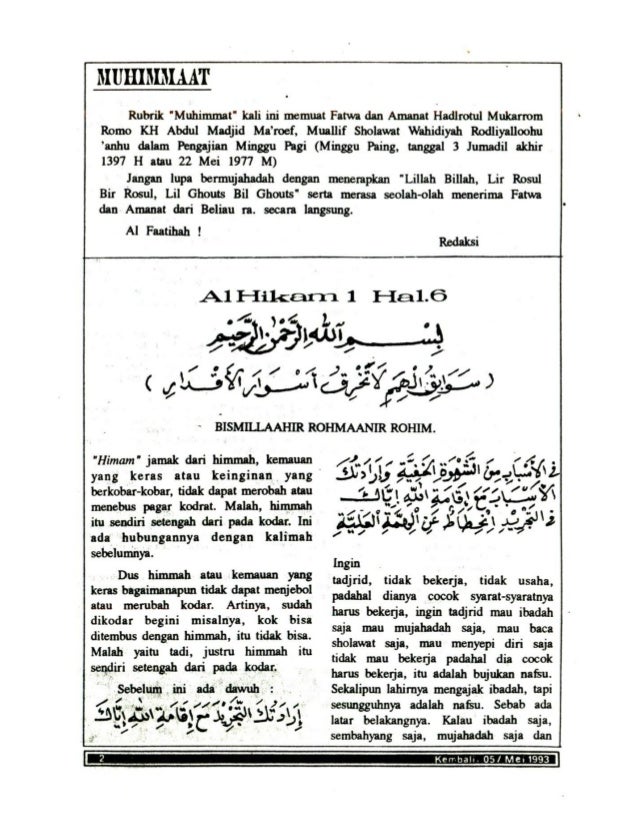 MUHIMMAAT
Rubrik "Muhimmat" kali ini memuat Fatwa dan Amanat Hadlrotul Mukarrom
Romo KH Abdul Madjid Ma'roef, Muallif Sholawat Wahidiyah Rodliyalloohu
'anhu dalam Pengajian Minggu Pagi (Minggu Paing, tanggal 3 Jumadil akhir
1397 H atau 22 Mei 1977 M)
Jangan lupa bermujahadah dengan menerapkan "Lillah Billah, Lir Rosul
Bir Rosul, Lil Ghouts Bil Ghouts" serta merasa seolah-olah menerima Fatwa
dan Amanat dari Beliau ra. secara langsung.
Al Faatihah !
Redaksi
Al Hikam 1 Hal.6
بِسْمِ اللهِ الرَّحْمٰنِ الرَّحِيْمِ
( سَوَابِقُ الْهِمَمِ لَا تَخْرِقُ أَسْوَارَ الْأَقْدَارِ )
BISMILLAAHIR ROHMAANIR ROHIM.
"Himam" jamak dari himmah, kemauan
yang keras atau keinginan yang
berkobar-kobar, tidak dapat merobah atau
menebus pagar kodrat. Malah, himmah
itu sendiri setengah dari pada kodar. Ini
ada hubungannya dengan kalimah
sebelumnya.
Dus himmah atau kemauan yang
keras bagaimanapun tidak dapat menjebol
atau merubah kodar. Artinya, sudah
dikodar begini misalnya, kok bisa
ditembus dengan himmah, itu tidak bisa.
Malah yaitu tadi, justru himmah itu
sendiri setengah dari pada kodar.
Sebelum ini ada dawuh :
إِرَادَتُكَ التَّجْرِيْدَ مَعَ إِقَامَةِ اللهِ إِيَّاكَ
فِى الْأَسْبَابِ مِنَ الشَّهْوَةِ الْخَفِيَّةِ وَإِرَادَتُكَ
الْأَسْبَابَ مَعَ إِقَامَةِ اللهِ إِيَّاكَ
فِى التَّجْرِيْدِ إِنْحِطَاطٌ عَنِ الْهِمَّةِ الْعَلِيَّةِ
Ingin
tadjrid, tidak bekerja, tidak usaha,
padahal dianya cocok syarat-syaratnya
harus bekerja, ingin tadjrid mau ibadah
saja mau mujahadah saja, mau baca
sholawat saja, mau menyepi diri saja
tidak mau bekerja padahal dia cocok
harus bekerja, itu adalah bujukan nafsu.
Sekalipun lahirnya mengajak ibadah, tapi
sesungguhnya adalah nafsu. Sebab ada
latar belakangnya. Kalau ibadah saja,
sembahyang saja, mujahadah saja dan
2
Kembali. 05/ Mei 1993